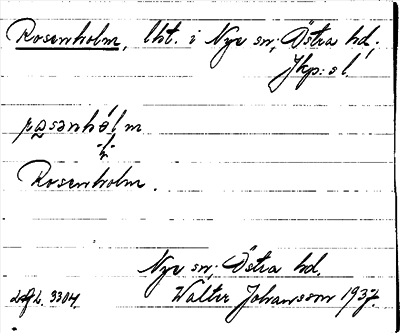 Rosenholm, lht. i Nye sn, Östra hd,
Jkp:s l.
rosənhólm
Rosenholm.
Nye sn, Östra hd.
Walter Johansson 1937.